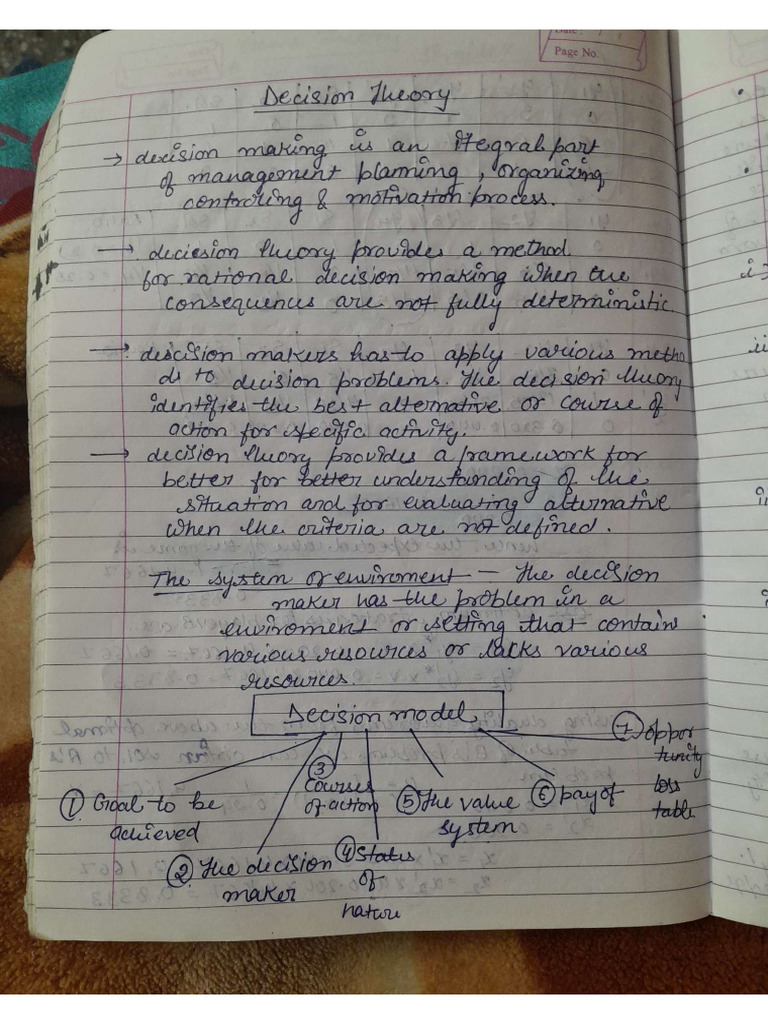 Date: / /
Page No.
Decision Theory
→ decision making is an itegral part
of management planning, organizing
controling & motivation process.
→ deciesion theory provides a method
for rational decision making when the
consequences are not fully deterministic.
→ descision makers has to apply various metho
ds to decision problems. The decision theory
identifies the best alternative or course of
action for specific activity.
→ decision theory provides a framework for
better for better understanding of the
situation and for evaluating alternative
when the criteria are not defined.
The system or enviroment - The decision
maker has the problem in a
enviroment or setting that contains
various resources or lacks various
resources.
Decision model
① Goal to be
achieved
② The decision
maker
③ Courses
of action
④ States
of
nature
⑤ The value
system
⑥ payof
⑦ oppor
tunity
loss
table